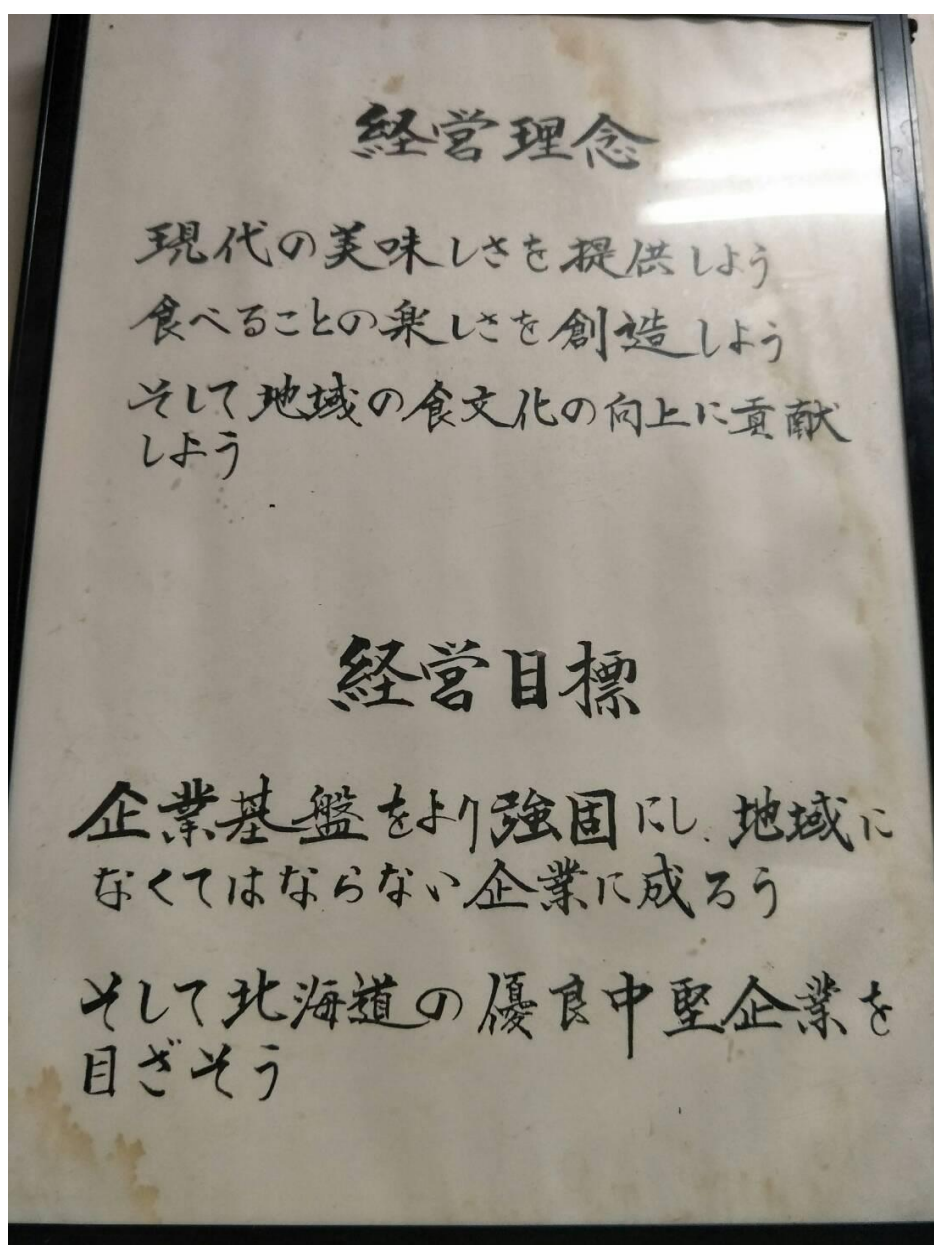 経営理念
現代の美味しさを提供しよう
食べることの楽しさを創造しよう
そして地域の食文化の向上に貢献
しよう
経営目標
企業基盤をより強固にし、地域に
なくてはならない企業に成ろう
そして北海道の優良中堅企業を
目ざそう